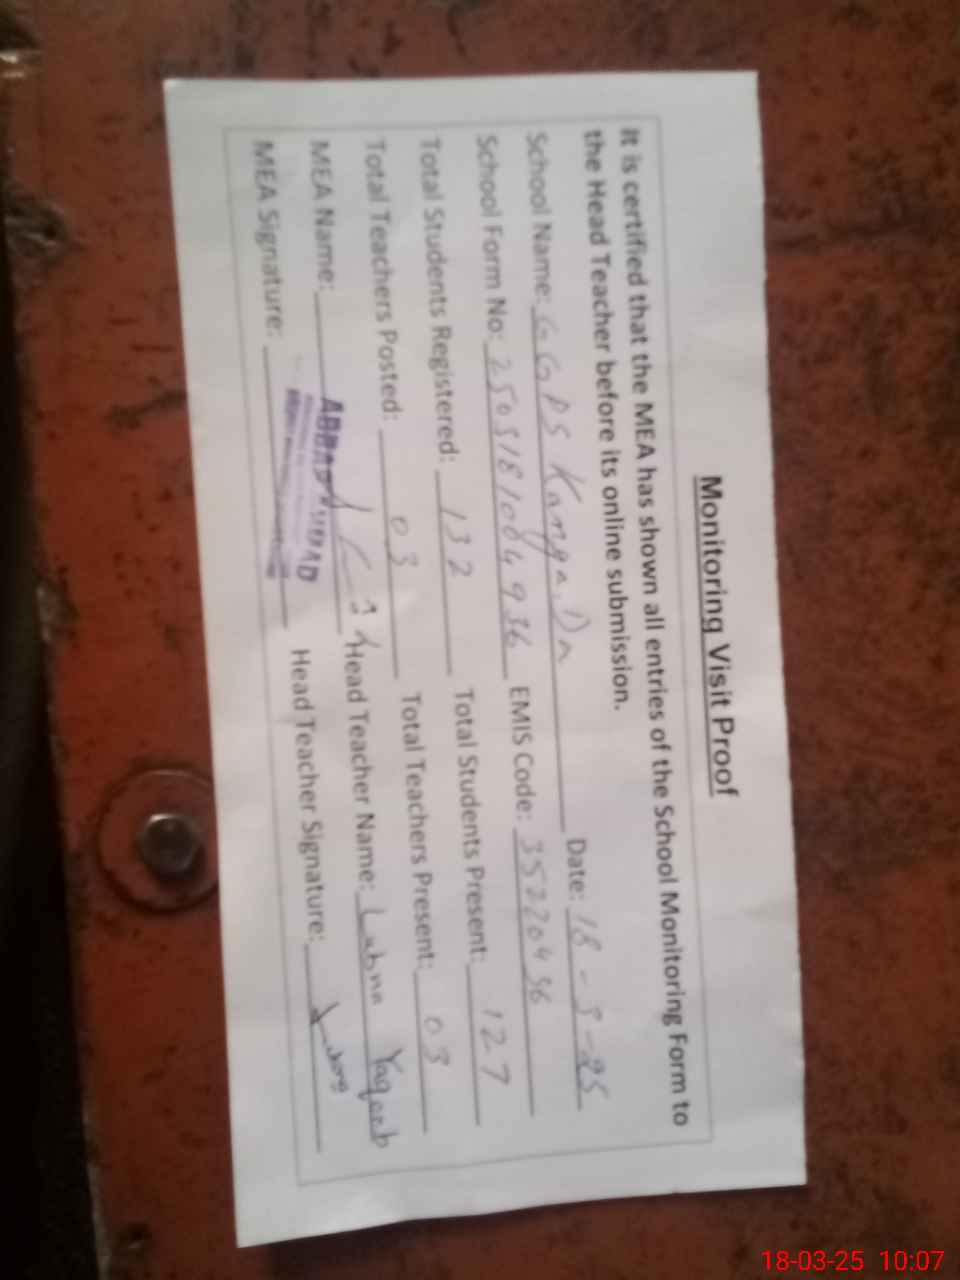 Monitoring Visit Proof
It is certified that the MEA has shown all entries of the School Monitoring Form to
the Head Teacher before its online submission.
School Name: GGPS Kanga Date: 18-3-25
School Form No: EMIS Code: 35220436
Total Students Registered: 132 Total Students Present: 127
Total Teachers Posted: 03 Total Teachers Present: 03
MEA Name: Head Teacher Name: Lubna Yaqoob
MEA Signature: Head Teacher Signature:
18-03-25 10:07